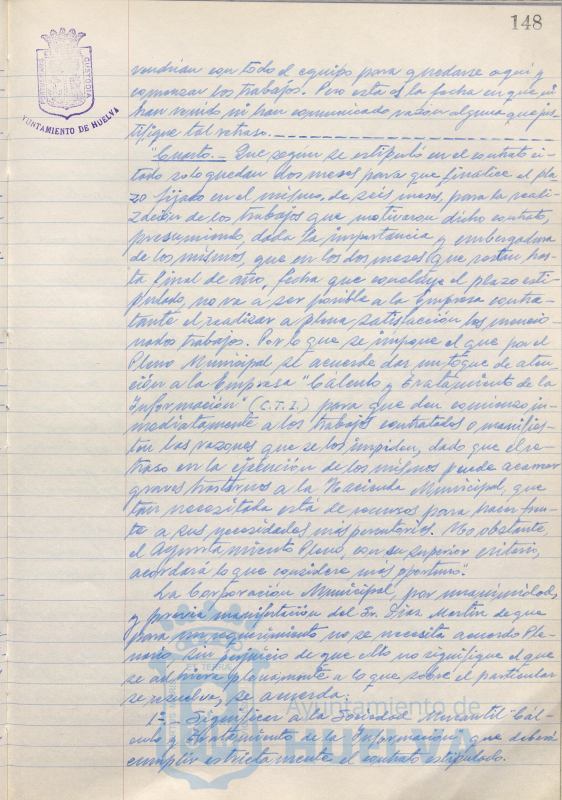 148
CUSTODIA
AYUNTAMIENTO DE HUELVA
vendrían con todo el equipo para quedarse aquí y
comenzar los trabajos. Pero esta es la fecha en que ni
han venido, ni han comunicado razón alguna que jus-
tifique tal retraso.
"Cuarto.- Que según se estipuló en el contrato ci-
tado solo quedan dos meses para que finalice el pla-
zo fijado en el mismo, de seis meses, para la reali-
zación de los trabajos que motivaron dicho contrato,
presumiendo, dada la importancia y embergadura
de los mismos, que en los dos meses que restan has-
ta final de año, fecha que concluye el plazo esti-
pulado, no va a ser posible a la Empresa contra-
tante el realizar a plena satisfacción los mencio-
nados trabajos. Por lo que se impone el que por el
Pleno Municipal se acuerde dar un toque de aten-
ción a la Empresa "Cálculo y Tratamiento de la
Información" (C.T.I.) para que den comienzo in-
mediatamente a los trabajos contratados o manifies-
ten las razones que se los impiden, dado que el re-
traso en la ejecución de los mismos puede acarrear
graves trastornos a la Hacienda Municipal, que
tan necesitada está de recursos para hacer fren-
te a sus necesidades más perentorias. No obstante,
el Ayuntamiento Pleno, con su superior criterio,
acordará lo que considere más oportuno".
La Corporación Municipal, por unanimidad,
y previa manifestación del Sr. Díaz Martín de que
para un requerimiento no se necesita acuerdo Ple-
nario sin perjuicio de que ello no signifique el que
se adhiera plenamente a lo que sobre el particular
se resuelva, se acuerda:
1º.- Significar a la Sociedad Mercantil "Cál-
culo y Tratamiento de la Información" que deberá
cumplir estrictamente el contrato estipulado.
Ayuntamiento de
HUELVA